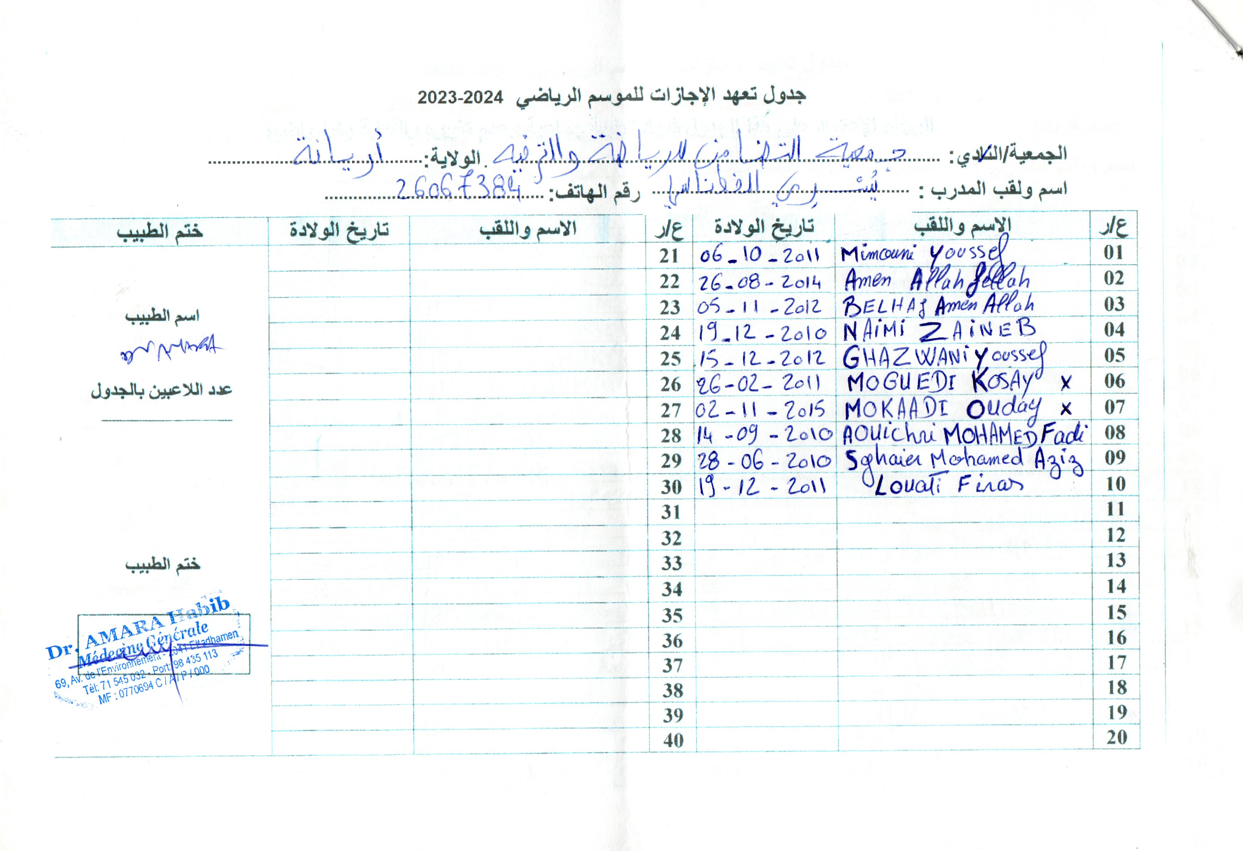 جدول تعهد الإجازات للموسم الرياضي 2023-2024
الجمعية/النادي: جمعية التضامن للرياضة والترفيه الولاية: أريانة
اسم ولقب المدرب : يُسْري رقم الهاتف: 26067384
ع/ر الاسم واللقب تاريخ الولادة ع/ر الاسم واللقب تاريخ الولادة ختم الطبيب
01 Mimouni Youssef 06-10-2011 21
02 Amen Allah Jellah 26-08-2014 22
03 BELHAJ Amen Allah 05-11-2012 23
04 NAIMI ZAINEB 19-12-2010 24
05 GHAZWANI Youssef 15-12-2012 25
06 MOGUEDI KOSAY x 26-02-2011 26
07 MOKAADI Ouday x 02-11-2015 27
08 AOUichri MOHAMED Fadi 14-09-2010 28
09 Sghaier Mohamed Aziz 28-06-2010 29
10 Louati Firas 19-12-2011 30
11 31
12 32
13 33
14 34
15 35
16 36
17 37
18 38
19 39
20 40
اسم الطبيب
Dr AMARA
عدد اللاعبين بالجدول
ختم الطبيب
Dr. AMARA Habib
Médecine Générale
69, Av. de l'Environnement - 2041 Ettadhamen
Tél: 71 545 032 - Port: 98 435 113
MF : 0770694 C / A / P / 000